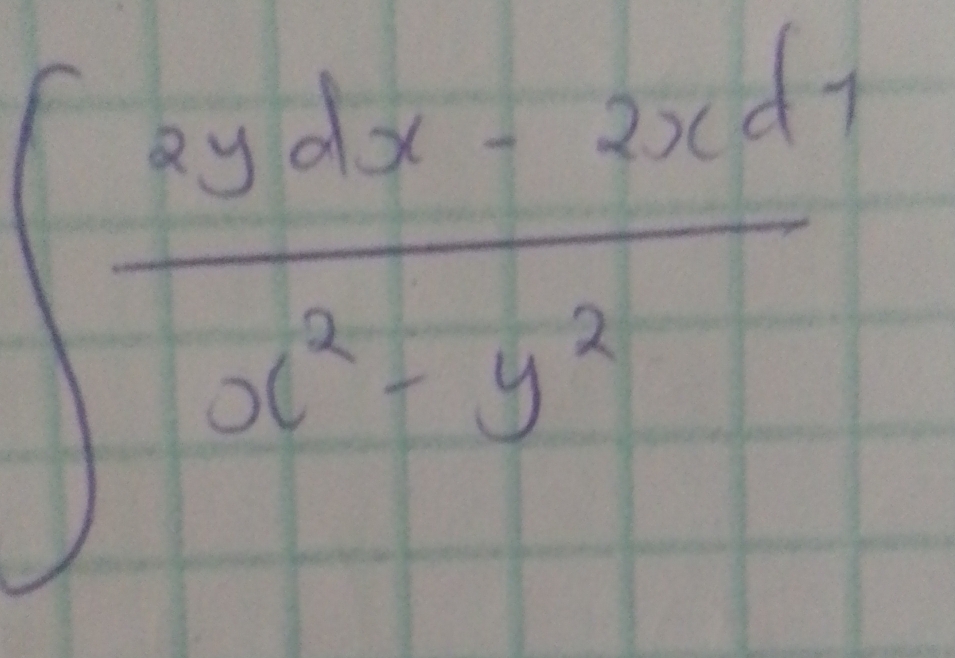 ∫ 2y dx - 2x d1
x² - y²